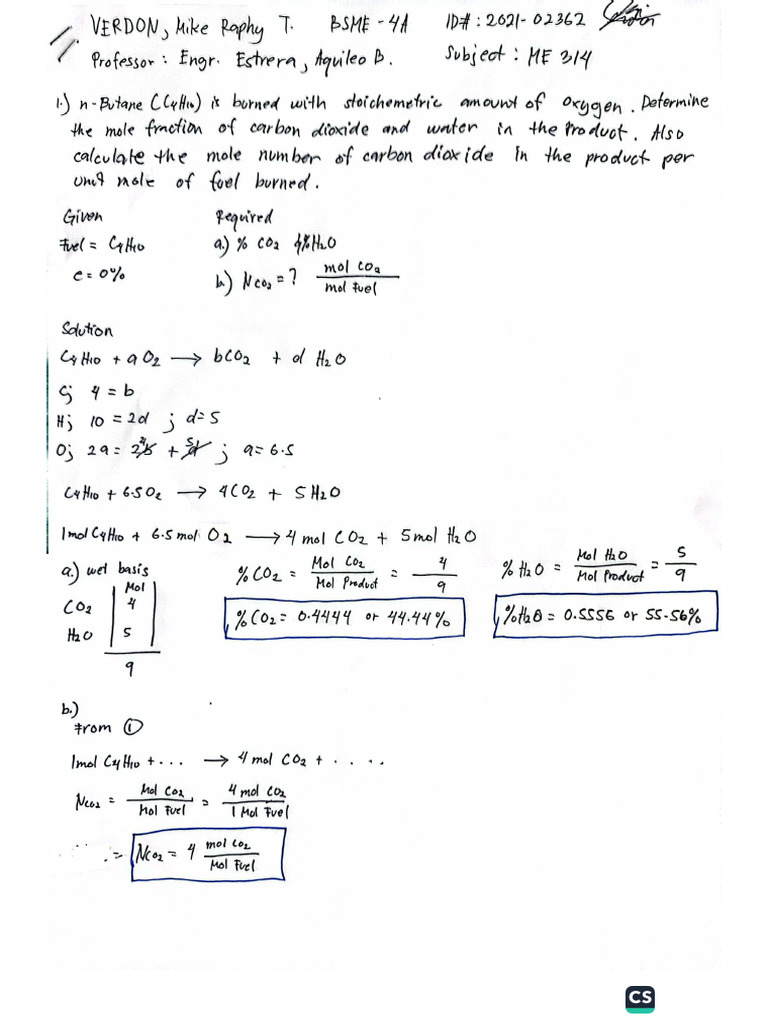 VERDON, Mike Raphy T. BSME - 4A ID#: 2021-02362
Professor: Engr. Estrera, Aquileo B. Subject: ME 314
1.) n-Butane (C4H10) is burned with stoichemetric amount of oxygen. Determine
the mole fraction of carbon dioxide and water in the Product. Also
calculate the mole number of carbon dioxide in the product per
unit mole of fuel burned.
Given Required
Fuel = C4H10 a.) % CO2 & %H2O
e = 0% b.) NCO2 = ? mol CO2 / mol Fuel
Solution
C4H10 + a O2 → bCO2 + d H2O
C; 4 = b
H; 10 = 2d ; d = 5
O; 2a = 2b 4 + d 5 ; a = 6.5
C4H10 + 6.5O2 → 4CO2 + 5H2O
1mol C4H10 + 6.5 mol O2 → 4 mol CO2 + 5 mol H2O
a.) wet basis %CO2 = Mol CO2 / Mol Product = 4 / 9 % H2O = Mol H2O / Mol Product = 5 / 9
Mol
CO2 4 %CO2 = 0.4444 or 44.44% %H2O = 0.5556 or 55.56%
H2O 5
9
b.)
From ①
1mol C4H10 + ... → 4 mol CO2 + .....
NCO2 = Mol CO2 / Mol Fuel = 4 mol CO2 / 1 Mol Fuel
∴ = NCO2 = 4 mol CO2 / Mol Fuel
CS